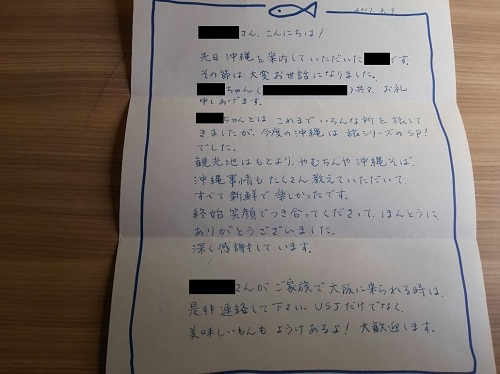 2017.3.9
さん、こんにちは!
先日沖縄を案内していただいた です。
その節は大変お世話になりました。
ちゃん( )共々、お礼
申しあげます。
ちゃんとは これまでいろんな所を旅して
きましたが、今度の沖縄は 旅シリーズのSP!
でした。
観光地はもとより、やむちんや沖縄そば、
沖縄事情もたくさん教えていただいて、
すべて新鮮で楽しかったです。
終始笑顔でつき合ってくださって、ほんとうに
ありがとうございました。
深く感謝しています。
さんがご家族で大阪に来られる時は、
是非連絡して下さい。USJだけでなく、
美味しいもんもようけあるよ!大歓迎します。